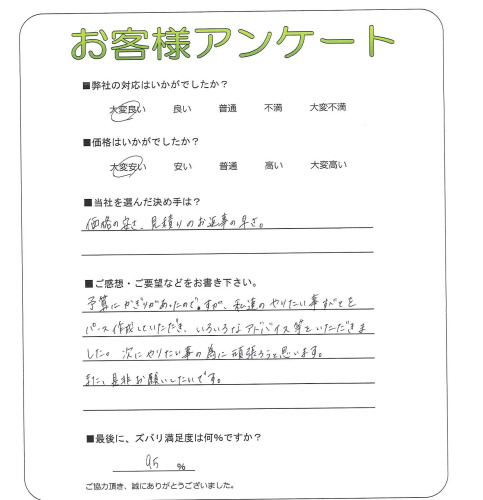 お客様アンケート
■弊社の対応はいかがでしたか？
大変良い 良い 普通 不満 大変不満
■価格はいかがでしたか？
大変安い 安い 普通 高い 大変高い
■当社を選んだ決め手は？
価格の安さ、見積りのお返事の早さ。
■ご感想・ご要望などをお書き下さい。
予算にかぎりがあったのですが、私達のやりたい事すべてを
パース作成していただき、いろいろなアドバイス等をいただきま
した。次にやりたい事の為に頑張ろうと思います。
また、是非お願いしたいです。
■最後に、ズバリ満足度は何％ですか？
95 ％
ご協力頂き、誠にありがとうございました。